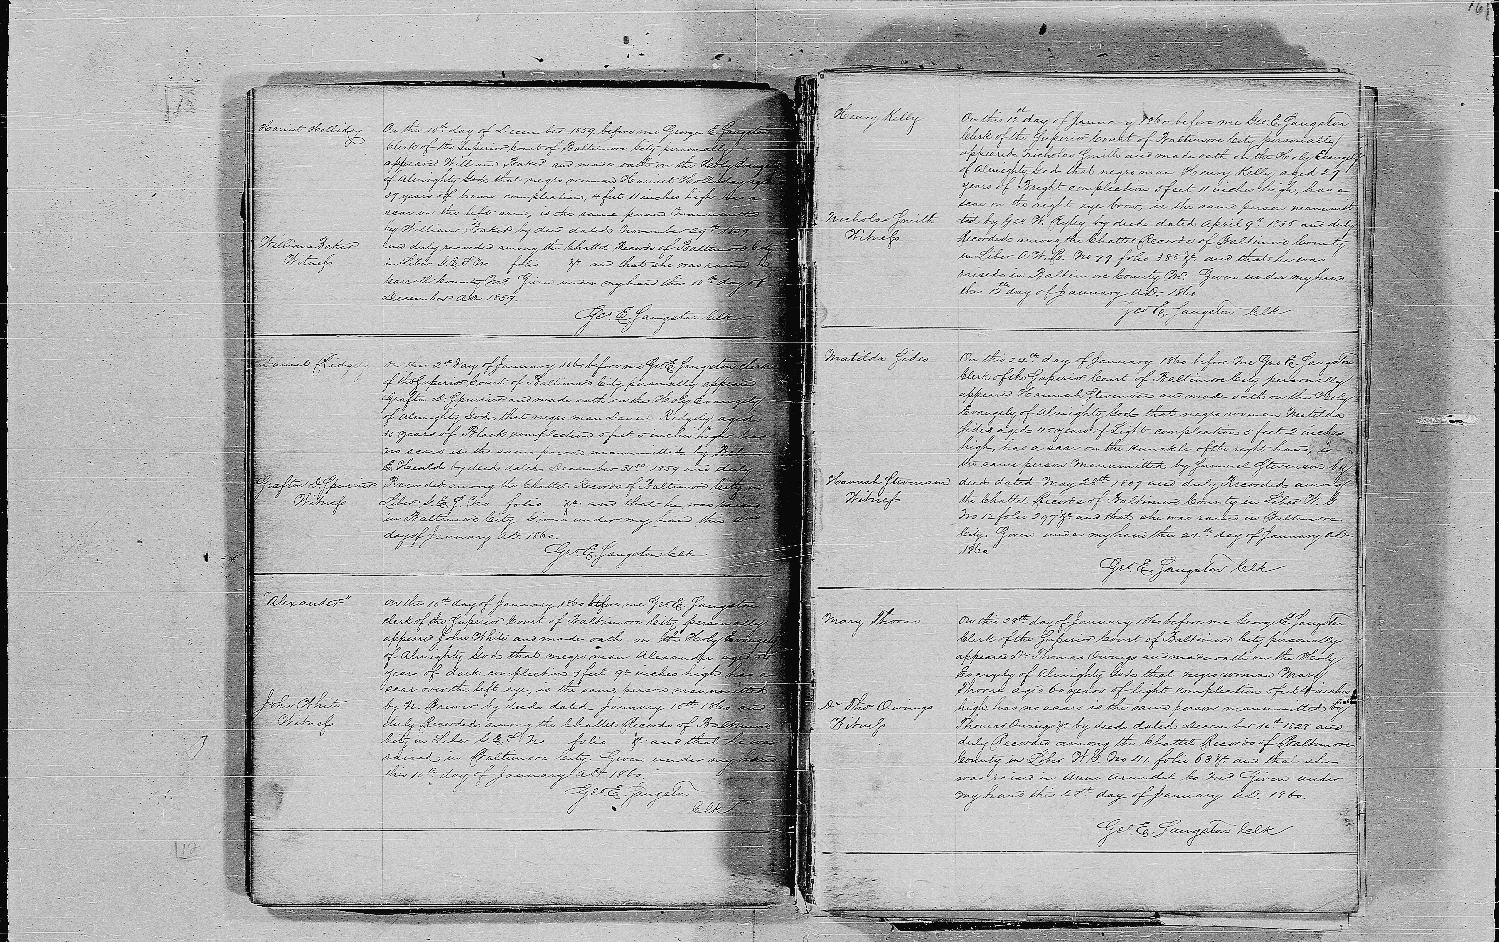 Harriet Holliday
On this 10th day of December 1859 before me George E. Sangston
Clerk of the Superior Court of Baltimore City personally
appeared William Baker and made oath on the Holy Evangely
of Almighty God that negro woman Harriet Holliday aged
37 years of brown complexion, 4 feet 11 inches high has a
scar on the left arm, is the same person manumitted
by William Baker by deed dated November 29th 1859
William Baker
Witness
and duly recorded among the Chattel Records of Baltimore City
in Liber G.E.S. No folio &c and that she was raised in
County Md Given under my hand this 10th day of
December A.D. 1859.
Geo E. Sangston Clk
Ridgely
On this 2nd day of January 1860 before me Geo E. Sangston Clerk
of the Superior Court of Baltimore City personally appeared
Grafton D. Spurrier and made oath on the Holy Evangely
of Almighty God, that negro man Ridgely aged
years of Black complexion 5 feet 5 inches high has
no scars is the same person manumitted by
E. Heald by deed dated December 31st 1859 and duly
Grafton D. Spurrier
Witness
Recorded among the Chattel Records of Baltimore City in
Liber G.E.S. No folio &c and that he was raised
in Baltimore City. Given under my hand this 2nd
day of January A.D. 1860.
Geo E. Sangston Clk
"Alexander"
On this 10th day of January 1860 before me Geo E. Sangston
Clerk of the Superior Court of Baltimore City personally
appeared John White and made oath on the Holy Evangely
of Almighty God that negro man Alexander aged
years of dark complexion 5 feet 9 inches high has a
scar over the left eye, is the same person manumitted
John White
Witness
by N. Brewer by deed dated January 10th 1860 and
duly Recorded among the Chattel Records of Baltimore
City in Liber G.E.S. No folio &c and that he was
raised in Baltimore City. Given under my hand
this 10th day of January A.D. 1860.
Geo E. Sangston
Clk
Henry Kelly
On this 12th day of January 1860 before me Geo. E. Sangston
Clerk of the Superior Court of Baltimore City personally
appeared Nicholas Smith and made oath on the Holy Evangely
of Almighty God that negro man Henry Kelly aged 29
years of Bright complexion 5 feet 11 inches high, has a
scar on the right eye brow, is the same person manumit
Nicholas Smith
Witness
ted by Geo W. Ripley by deed dated April 9th 1855 and duly
Recorded among the Chattel Records of Baltimore County
in Liber No 79 folio 385 &c and that he was
raised in Baltimore County Md. Given under my hand
this 12th day of January A.D. 1860
Geo E. Sangston Clk
Matilda Gides
On this 24th day of January 1860 before me Geo E. Sangston
Clerk of the Superior Court of Baltimore City personally
appeared Hannah Stevenson and made oath on the Holy
Evangely of Almighty God that negro woman Matilda
Gides aged 45 years of Light complexion 5 feet 2 inches
high, has a scar on the knuckle of the right hand, is
the same person Manumitted by Samuel Stevenson by
Hannah Stevenson
Witness
deed dated May 28th and duly Recorded among
the Chattel Records of Baltimore County in Liber W.G.
No 12 folio 297 &c and that she was raised in Baltimore
City. Given under my hand this 24th day of January A.D.
1860
Geo E. Sangston Clk
Mary Thorn
On this 28th day of January 1860 before me George E. Sangston
Clerk of the Superior Court of Baltimore City personally
appeared Dr Thomas Owings and made oath on the Holy
Evangely of Almighty God that negro woman Mary
Thorn aged years of light complexion feet inches
high has no scars is the same person manumitted by
Dr Thos Owings
Witness
Thomas Owings by deed dated December 16th 1828 and
duly Recorded among the Chattel Records of Baltimore
County in Liber W.G. No 41 folio 63 &c and that she
was raised in Anne Arundel Co Md Given under
my hand this 28th day of January A.D. 1860.
Geo E. Sangston Clk